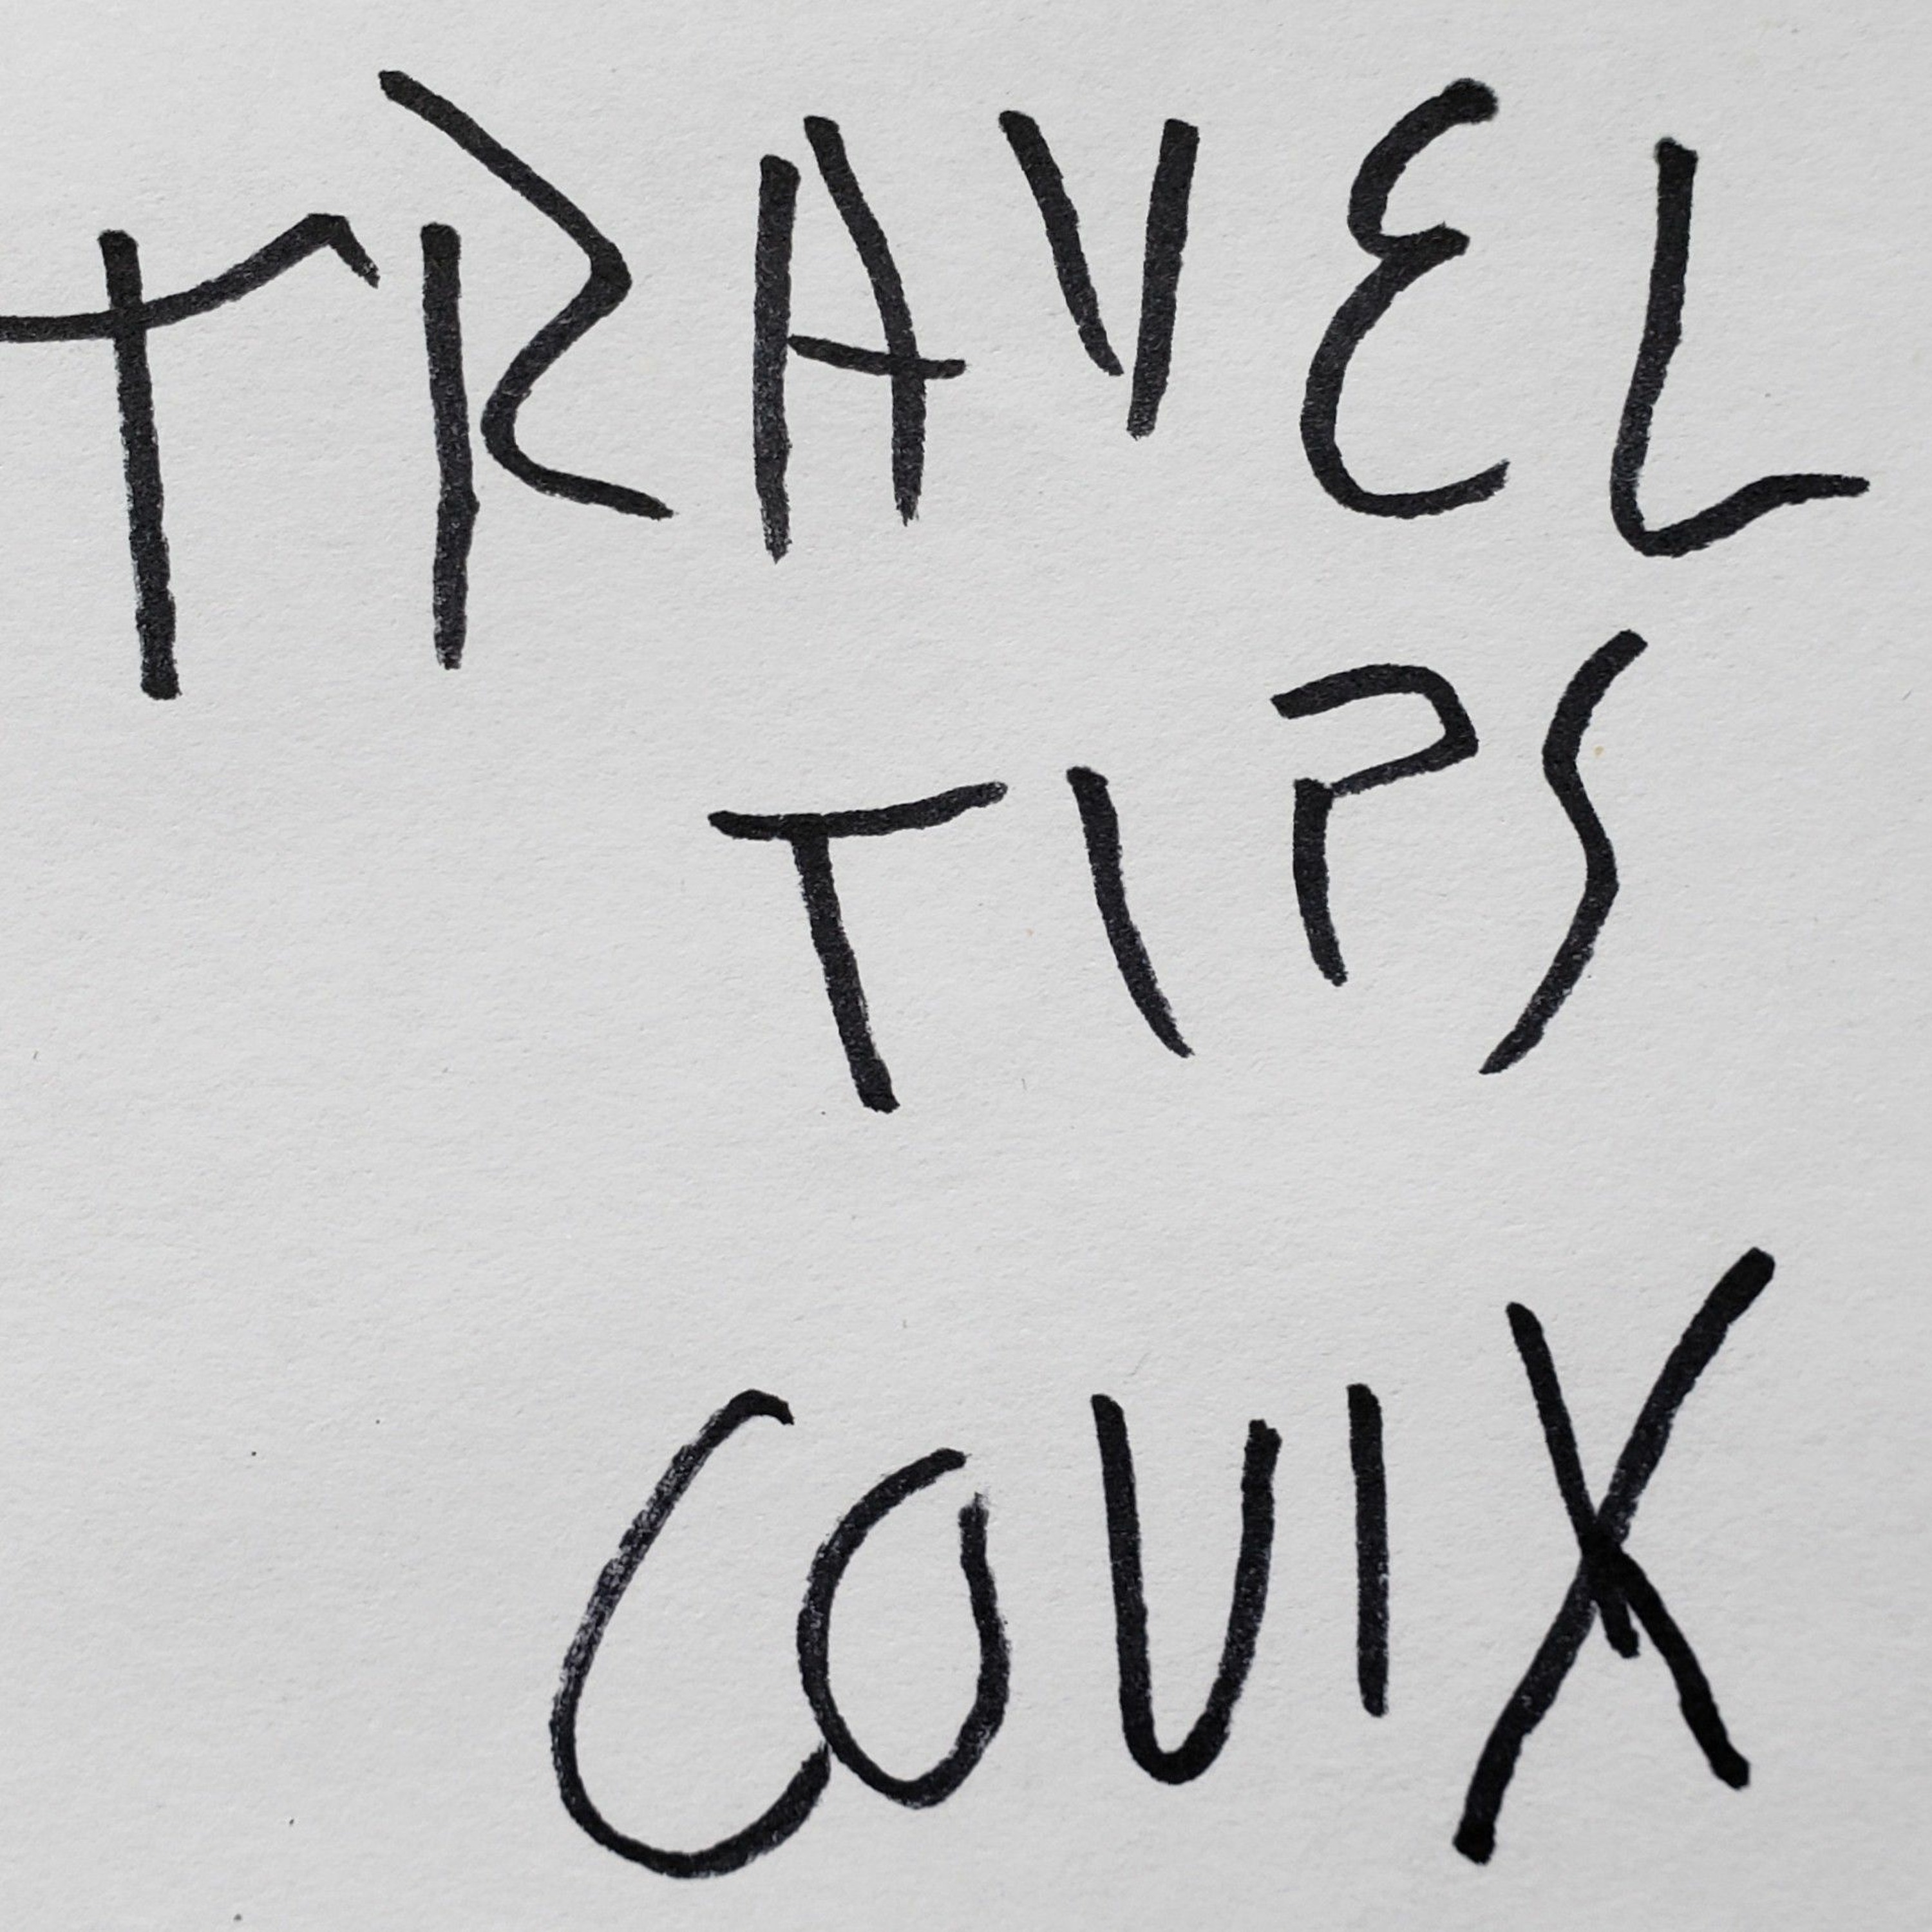 TRAVEL
TIPS
COUIX